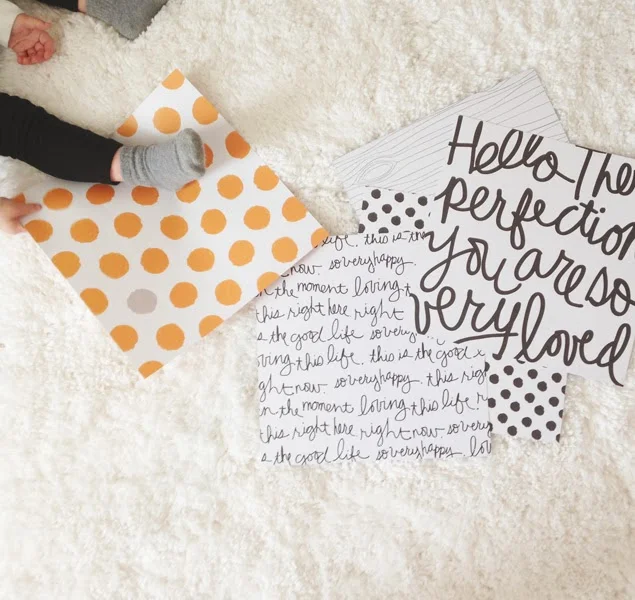 Hello The
perfection
You are so
very loved
life. this is the
now. so very happy.
n the moment loving t
this right here right
s the good life so very
oving this life. this is the good
ght now. so very happy. this rig
n the moment loving this life.
this right here right now. so very
s the good life so very happy. lov